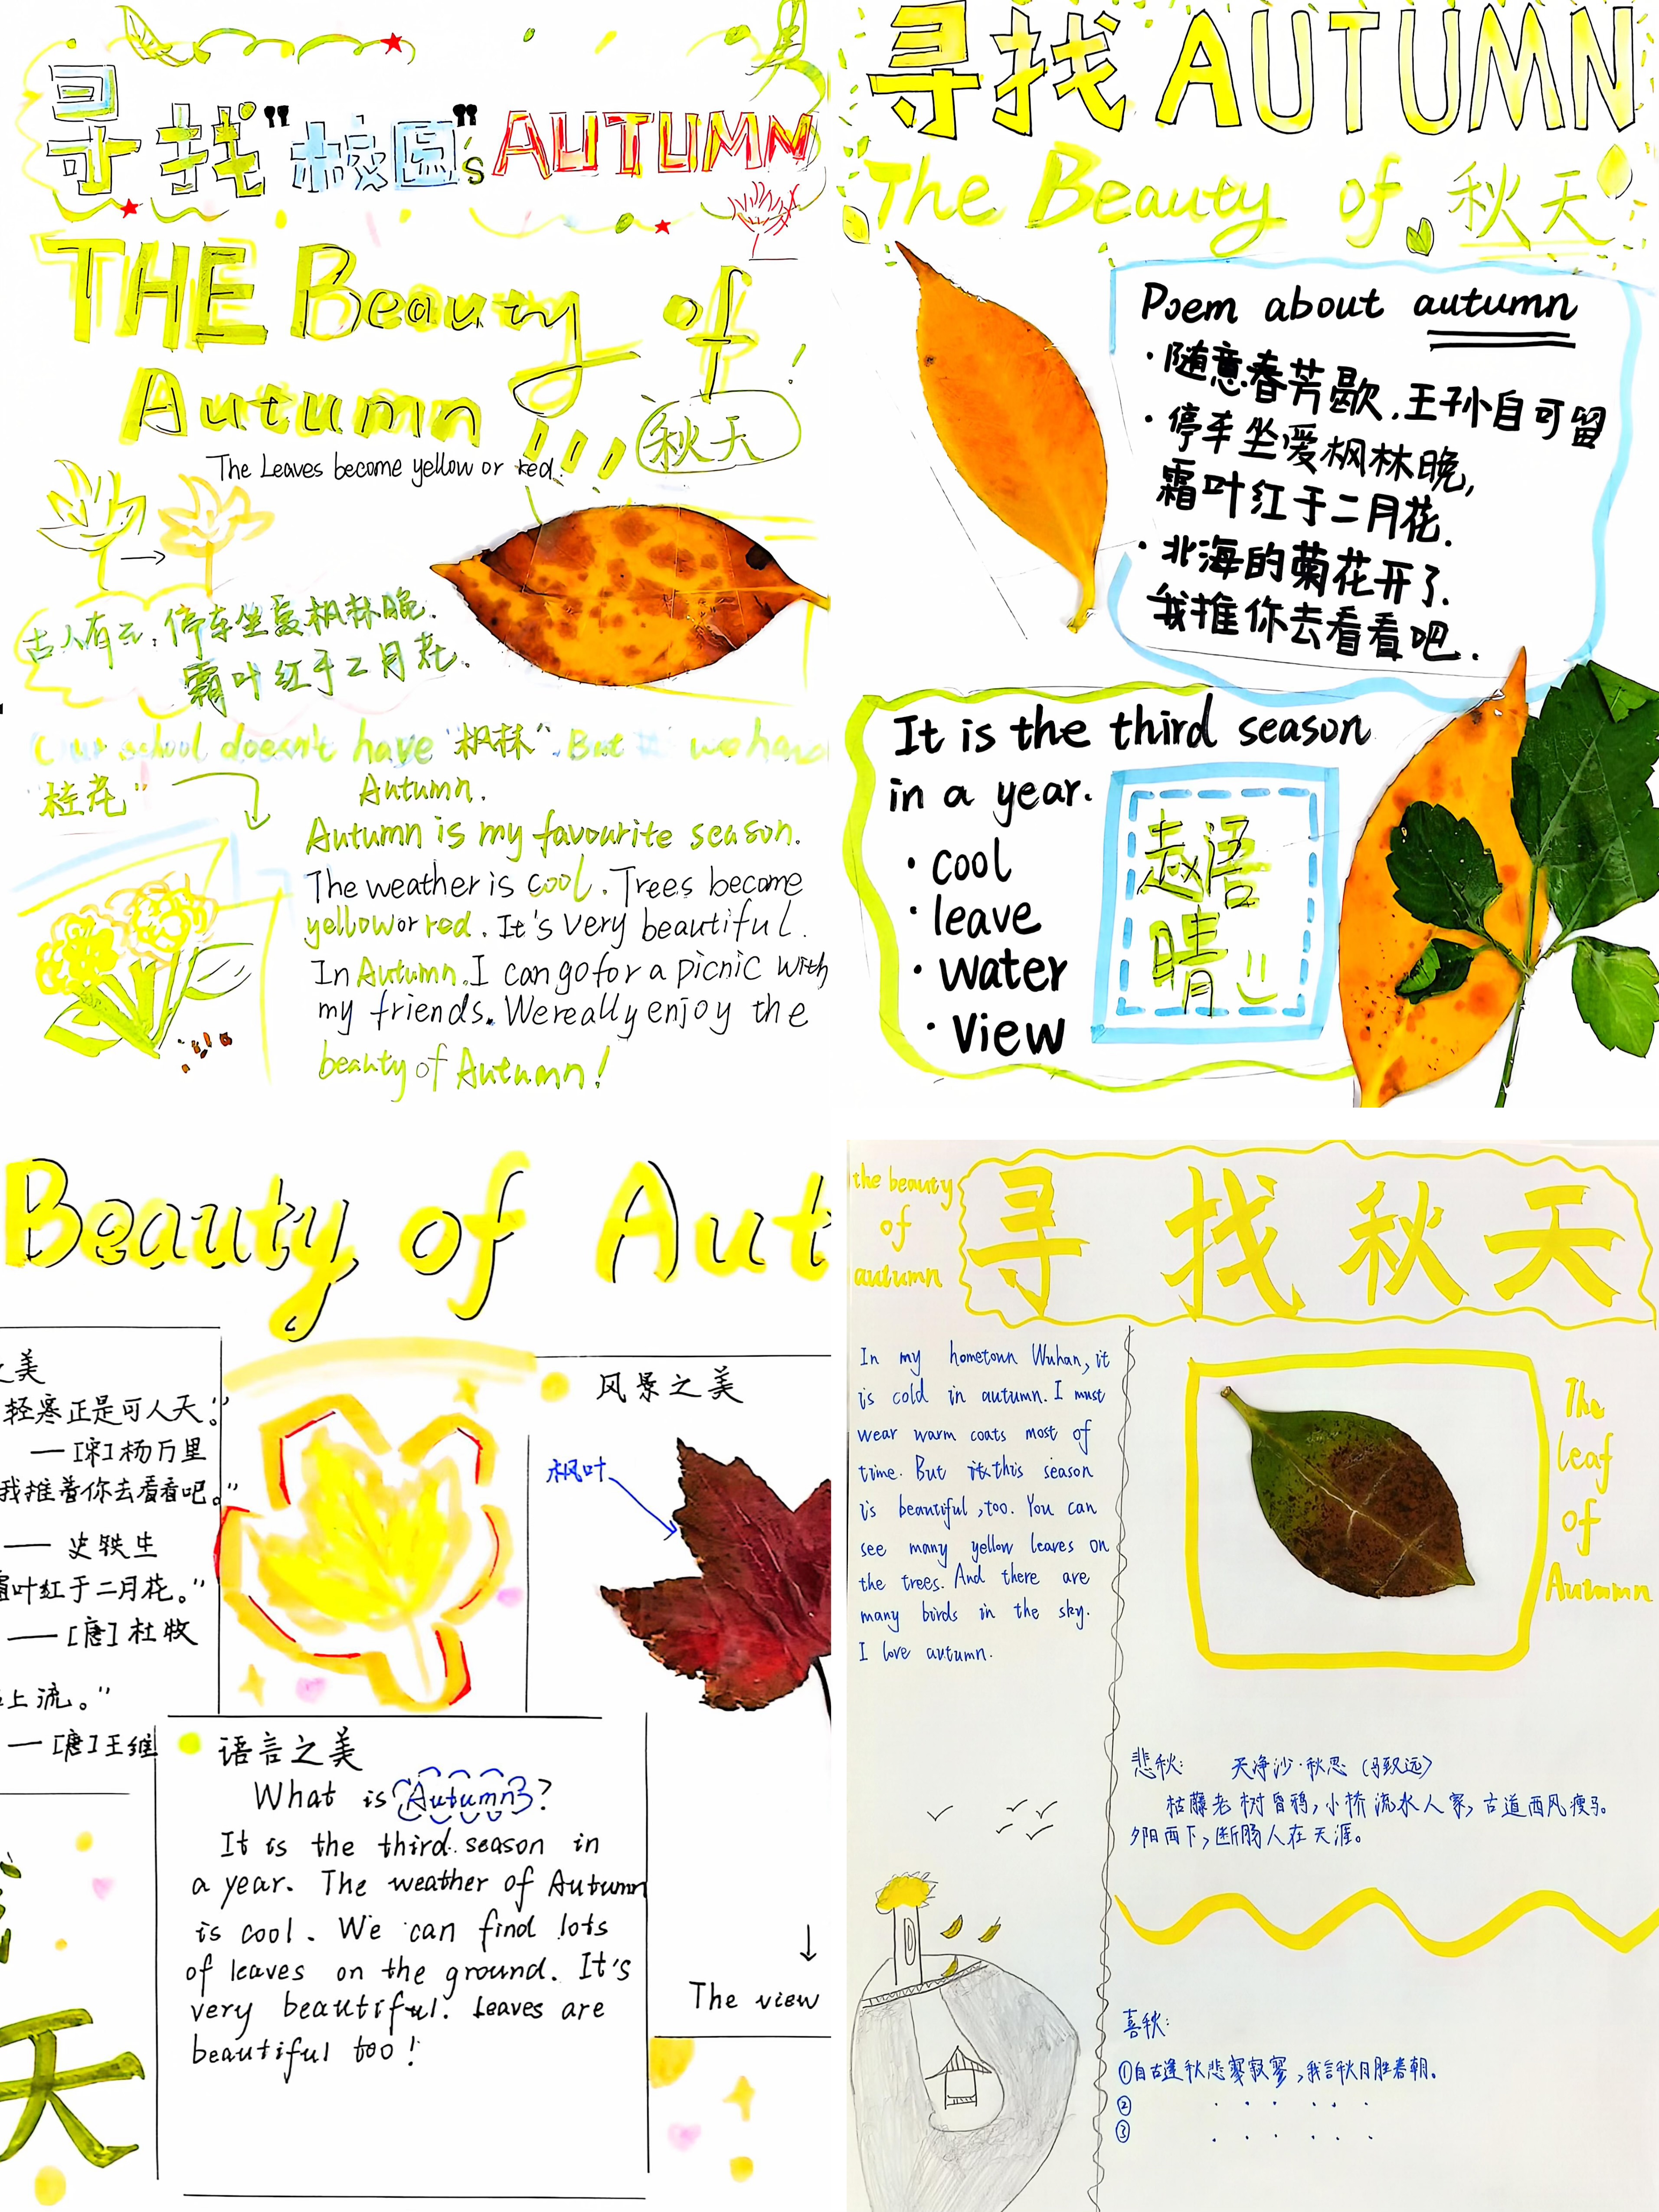 寻找"校园"'s AUTUMN
THE Beauty of
Autumn
秋天
The Leaves become yellow or red.
古人有云:停车坐爱枫林晚.
霜叶红于二月花.
Our school doesn't have "枫林". But we have
"桂花"
Autumn.
Autumn is my favourite season.
The weather is cool. Trees become
yellow or red. It's very beautiful.
In Autumn. I can go for a picnic with
my friends. We really enjoy the
beauty of Autumn!
寻找AUTUMN
The Beauty of 秋天
Poem about autumn
·随意春芳歇.王孙自可留
·停车坐爱枫林晚,
霜叶红于二月花.
·北海的菊花开了.
我推你去看看吧.
It is the third season
in a year.
·cool
·leave
·water
·view
赵语
晴
Beauty of Aut
之美
轻寒正是可人天。"
——[宋]杨万里
我推着你去看看吧。"
——史铁生
霜叶红于二月花。"
——[唐]杜牧
上流。"
——[唐]王维
天
风景之美
枫叶
The view
语言之美
What is Autumn?
It is the third season in
a year. The weather of Autumn
is cool. We can find lots
of leaves on the ground. It's
very beautiful. Leaves are
beautiful too!
the beauty
of
autumn
寻找秋天
In my hometown Wuhan, it
is cold in autumn. I must
wear warm coats most of
time. But this season
is beautiful, too. You can
see many yellow leaves on
the trees. And there are
many birds in the sky.
I love autumn.
The
leaf
of
Autumn
悲秋: 天净沙·秋思(马致远)
枯藤老树昏鸦,小桥流水人家,古道西风瘦马。
夕阳西下,断肠人在天涯。
喜秋:
①自古逢秋悲寂寥,我言秋日胜春朝。
② · · · · · ·
③ · · · · · ·